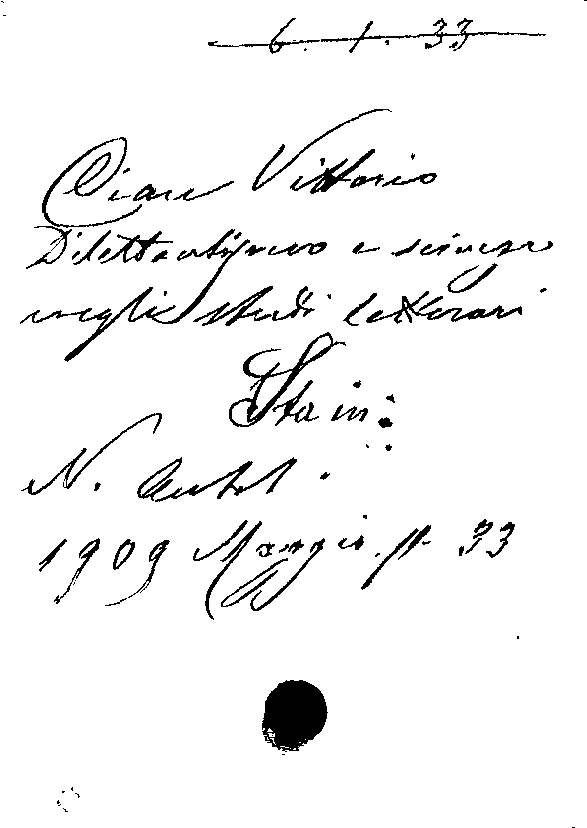 6. 1. 33
Cian Vittorio
Dilettantismo e scienza
negli studi letterari
Sta in:
N. Antol.
1909 Maggio p. 33